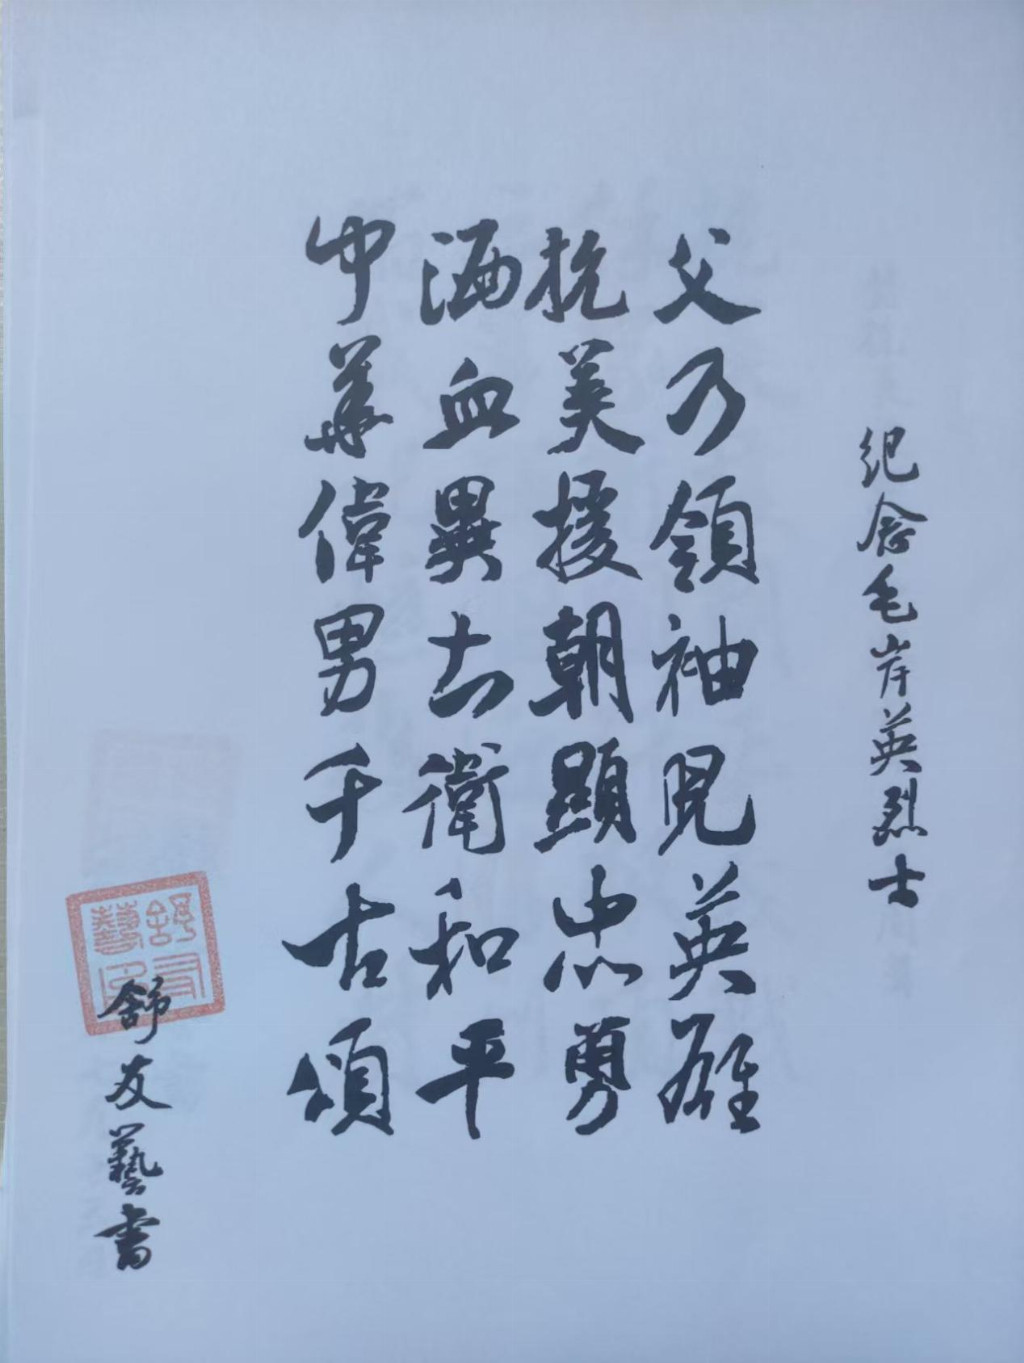 纪念毛岸英烈士
父乃領袖兒英雄
抗美援朝顯忠勇
洒血異土衛和平
中華偉男千古頌
舒友藝書
舒友藝印